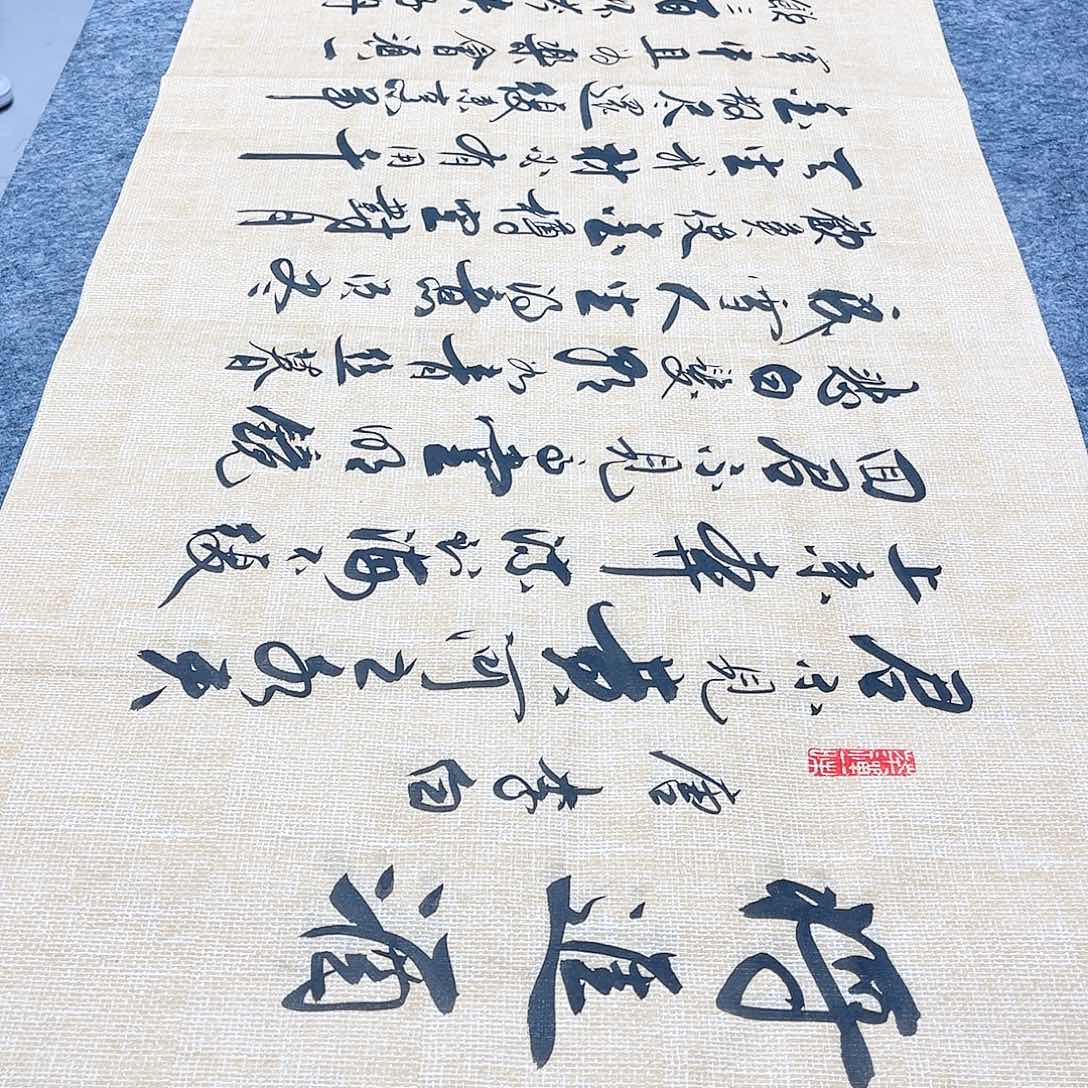 將進酒
唐李白
君不見黄河之水天
上来奔流到海不復
回君不見高堂明鏡
悲白髮朝如青絲暮
成雪人生得意須尽
歡莫使金樽空對月
天生我材必有用千
金散尽還復来烹羊
宰牛且为樂會須一
飲三百杯岑夫子丹